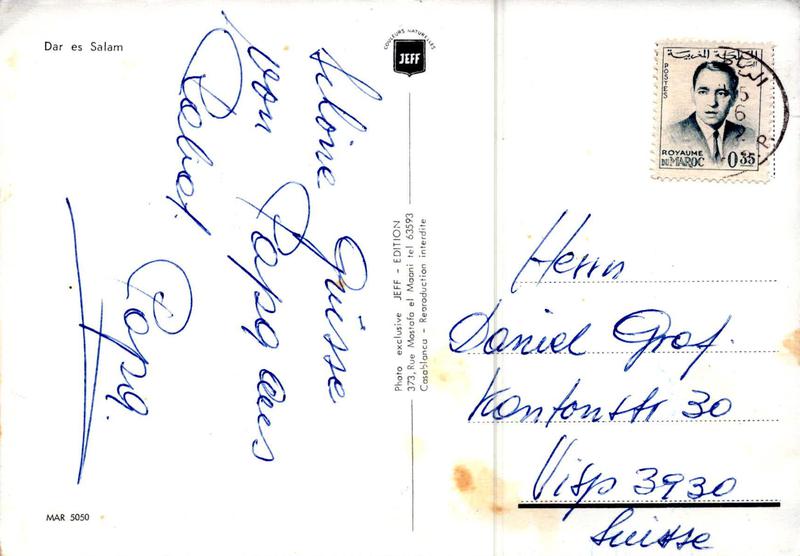 Dar es Salam
COULEURS NATURELLES
JEFF
Schöne Grüsse
von Papa aus
Rabat.
Papa.
MAR 5050
Photo exclusive JEFF - EDITION
373, Rue Mostafa el Maani tel 63593
Casablanca - Reproduction interdite
المملكة المغربية
POSTES
ROYAUME
DU MAROC
0.35
Herrn
Daniel Graf.
Kantonstr 30
Visp 3930
Suisse